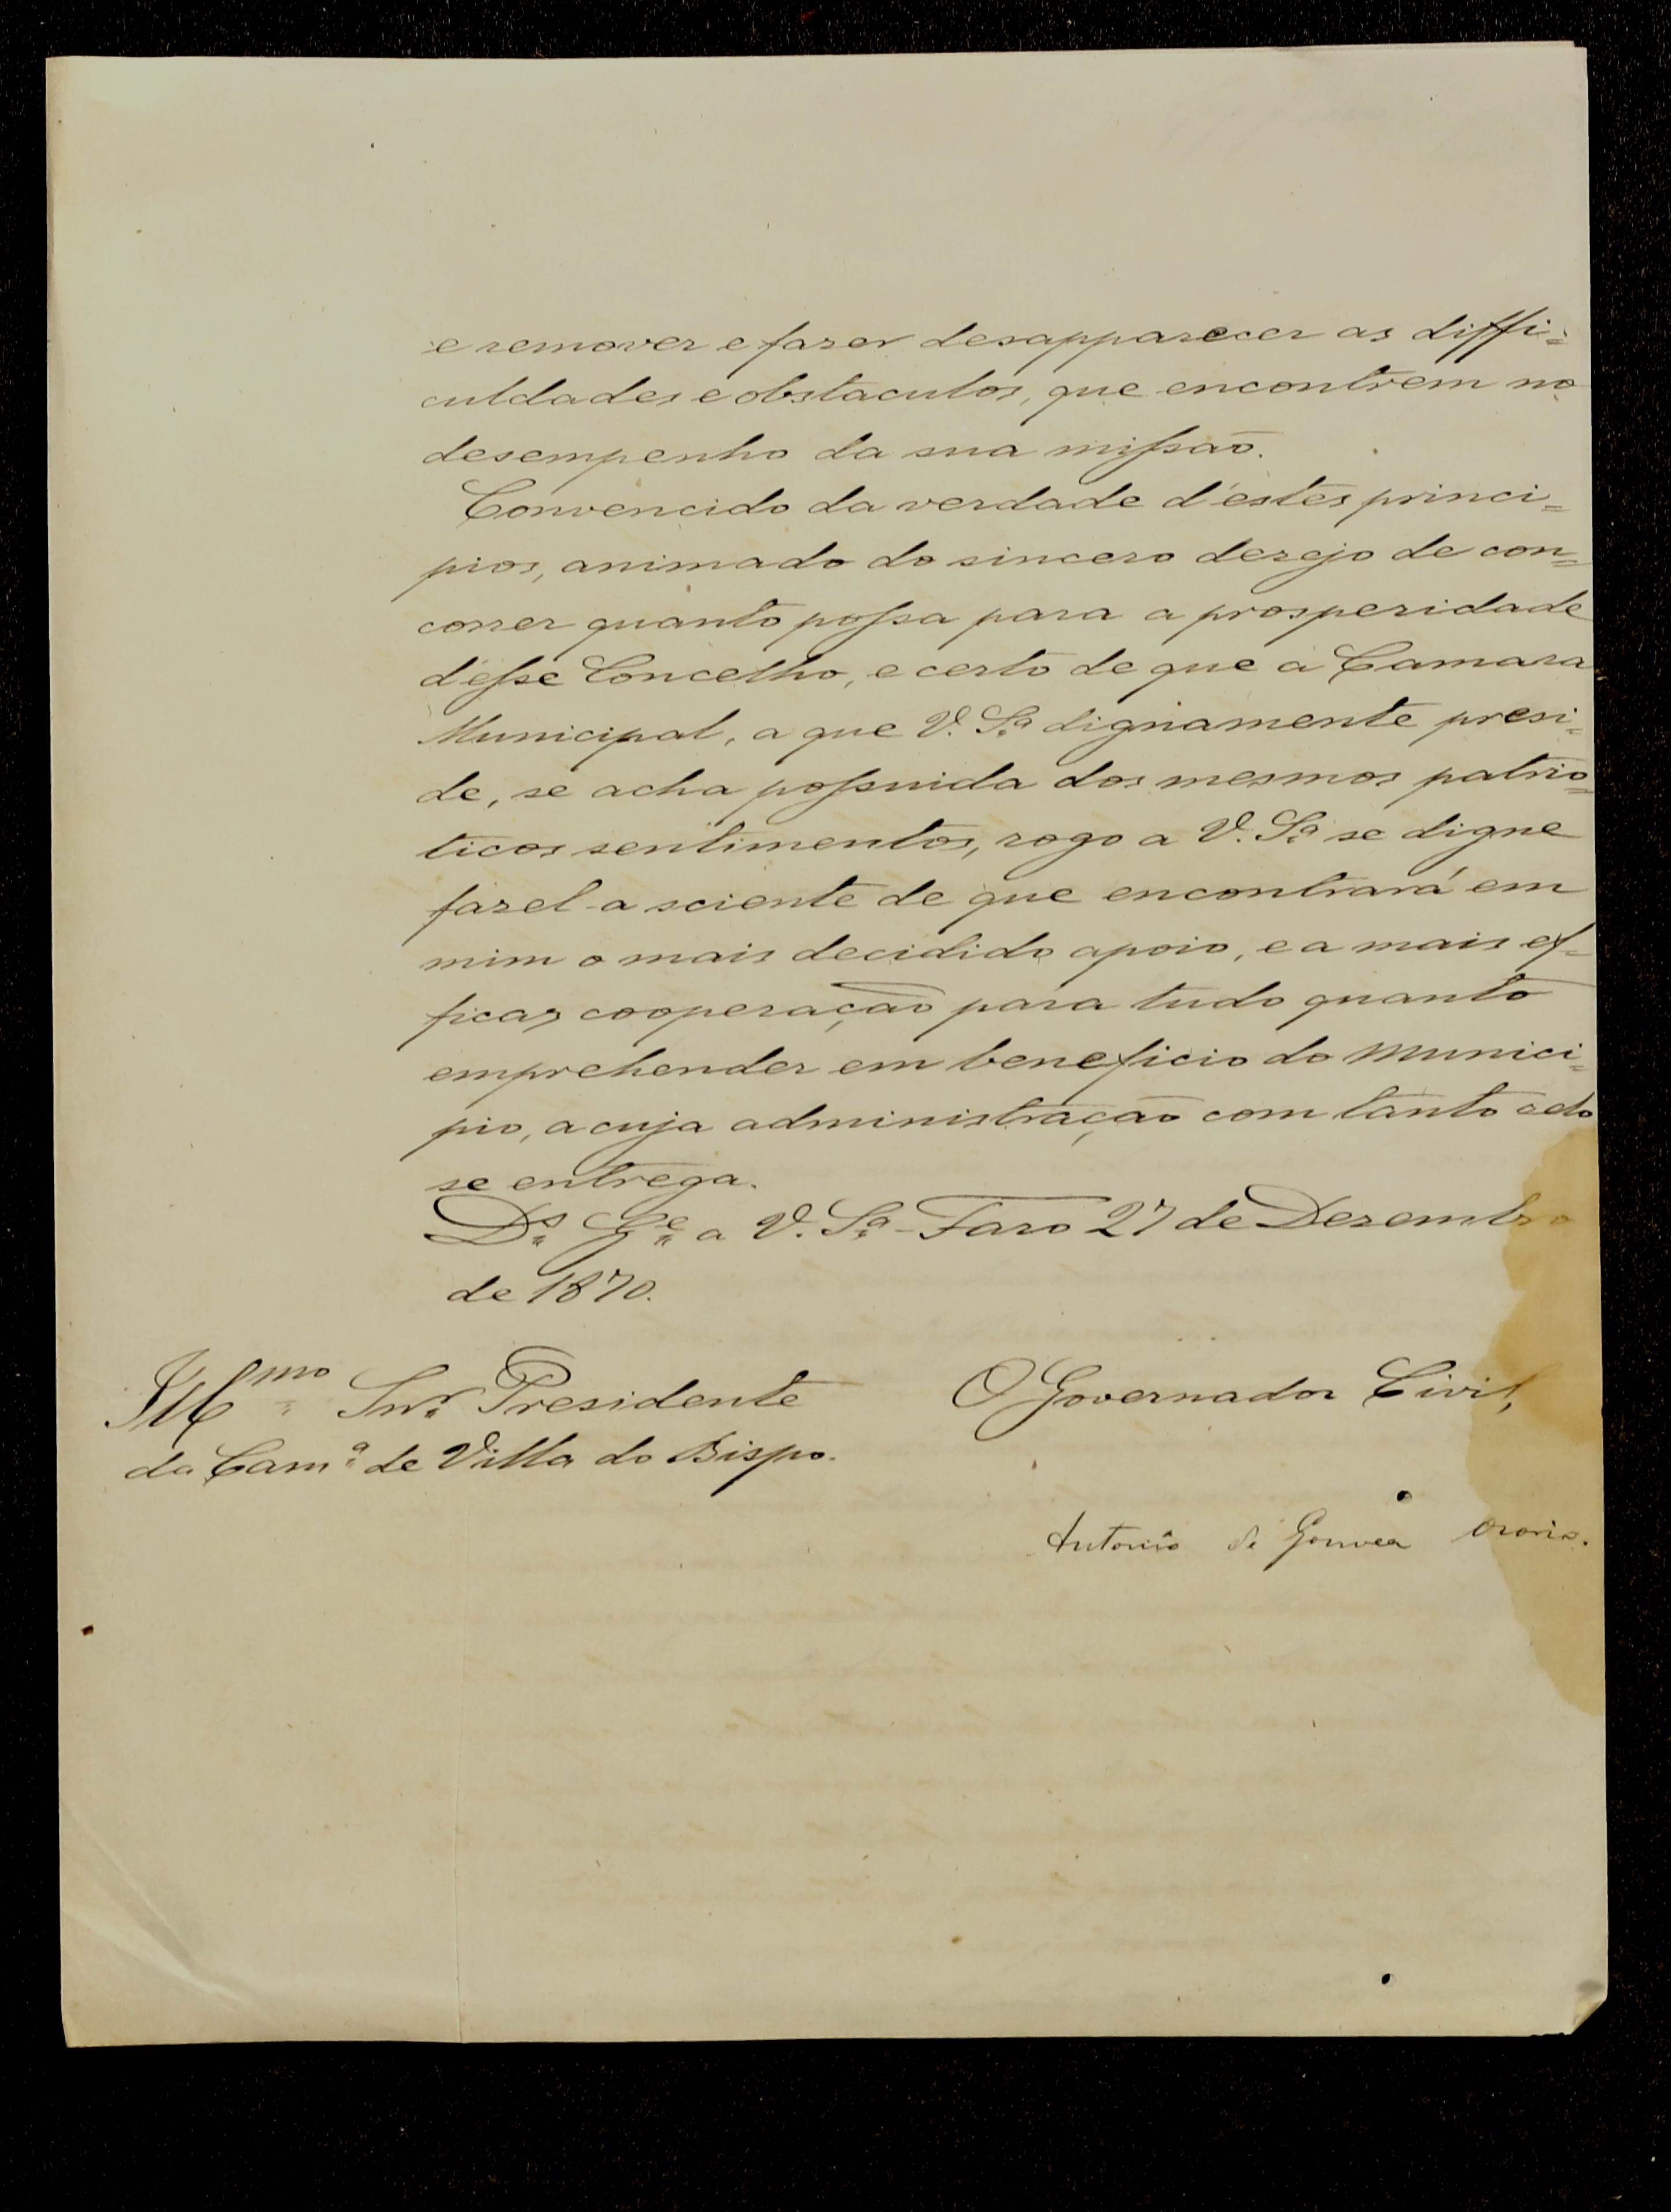 e remover e fazer desapparecer as diffi=
culdades e obstaculos, que encontrem no
desempenho da sua missão.
Convencido da verdade d'estes princi=
pios, animado do sincero desejo de con=
correr quanto possa para a prosperidade
d'esse Concelho, e certo de que a Camara
Municipal, a que V. Sª dignamente presi=
de, se acha possuida dos mesmos patrio=
ticos sentimentos, rogo a V. Sª se digne
fazel-a sciente de que encontrará em
mim o mais decidido apoio, e a mais ef=
ficaz cooperação para tudo quanto
emprehender em beneficio do Munici=
pio, a cuja administração com tanto zelo
se entrega.
Dˢ Gᵉ a V. Sª - Faro 27 de Dezembro
de 1870.
Illᵐᵒ Snr. Presidente
da Camª de Villa do Bispo.
O Governador Civil,
Antonio de Gouvea Ozorio.